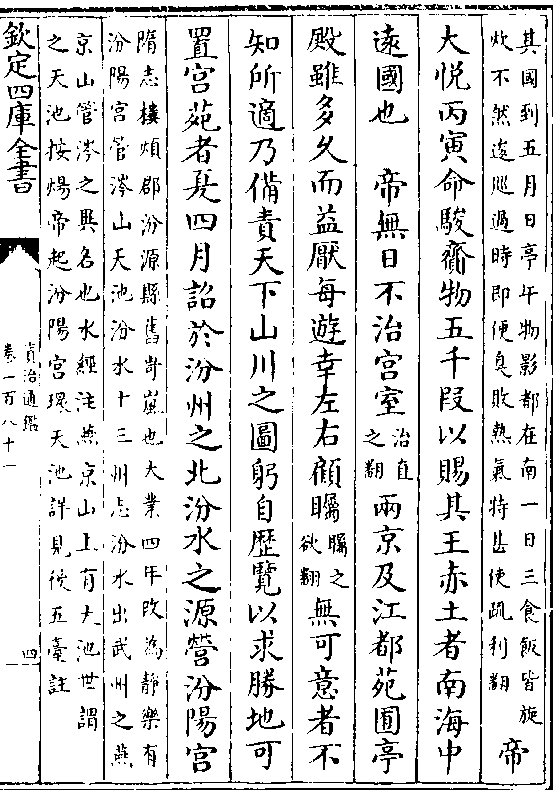 其國到五月日亭午物影都在南一日三食飯皆旋
炊不然逡巡過時即便臭敗熱氣特甚使疏利翻
帝
大悦丙寅命駿齎物五千叚以賜其王赤土者南海中
逺國也　帝無日不治宫室
治直
之翻
兩京及江都苑囿亭
殿雖多久而益厭每遊幸左右顧矚
矚之
欲翻
無可意者不
知所適乃備責天下山川之圖躬自歴覽以求勝地可
置宫苑者夏四月詔於汾州之北汾水之源營汾陽宫
隋志樓煩郡汾源縣舊岢嵐也大業四年改為靜樂有
汾陽宫管涔山天池汾水十三州志汾水出武州之燕
京山管涔之異名也水經注燕京山上有大池世謂
之天池按煬帝起汾陽宫環天池詳見後五臺註
欽定四庫全書
資治通鑑
卷一百八十一
四